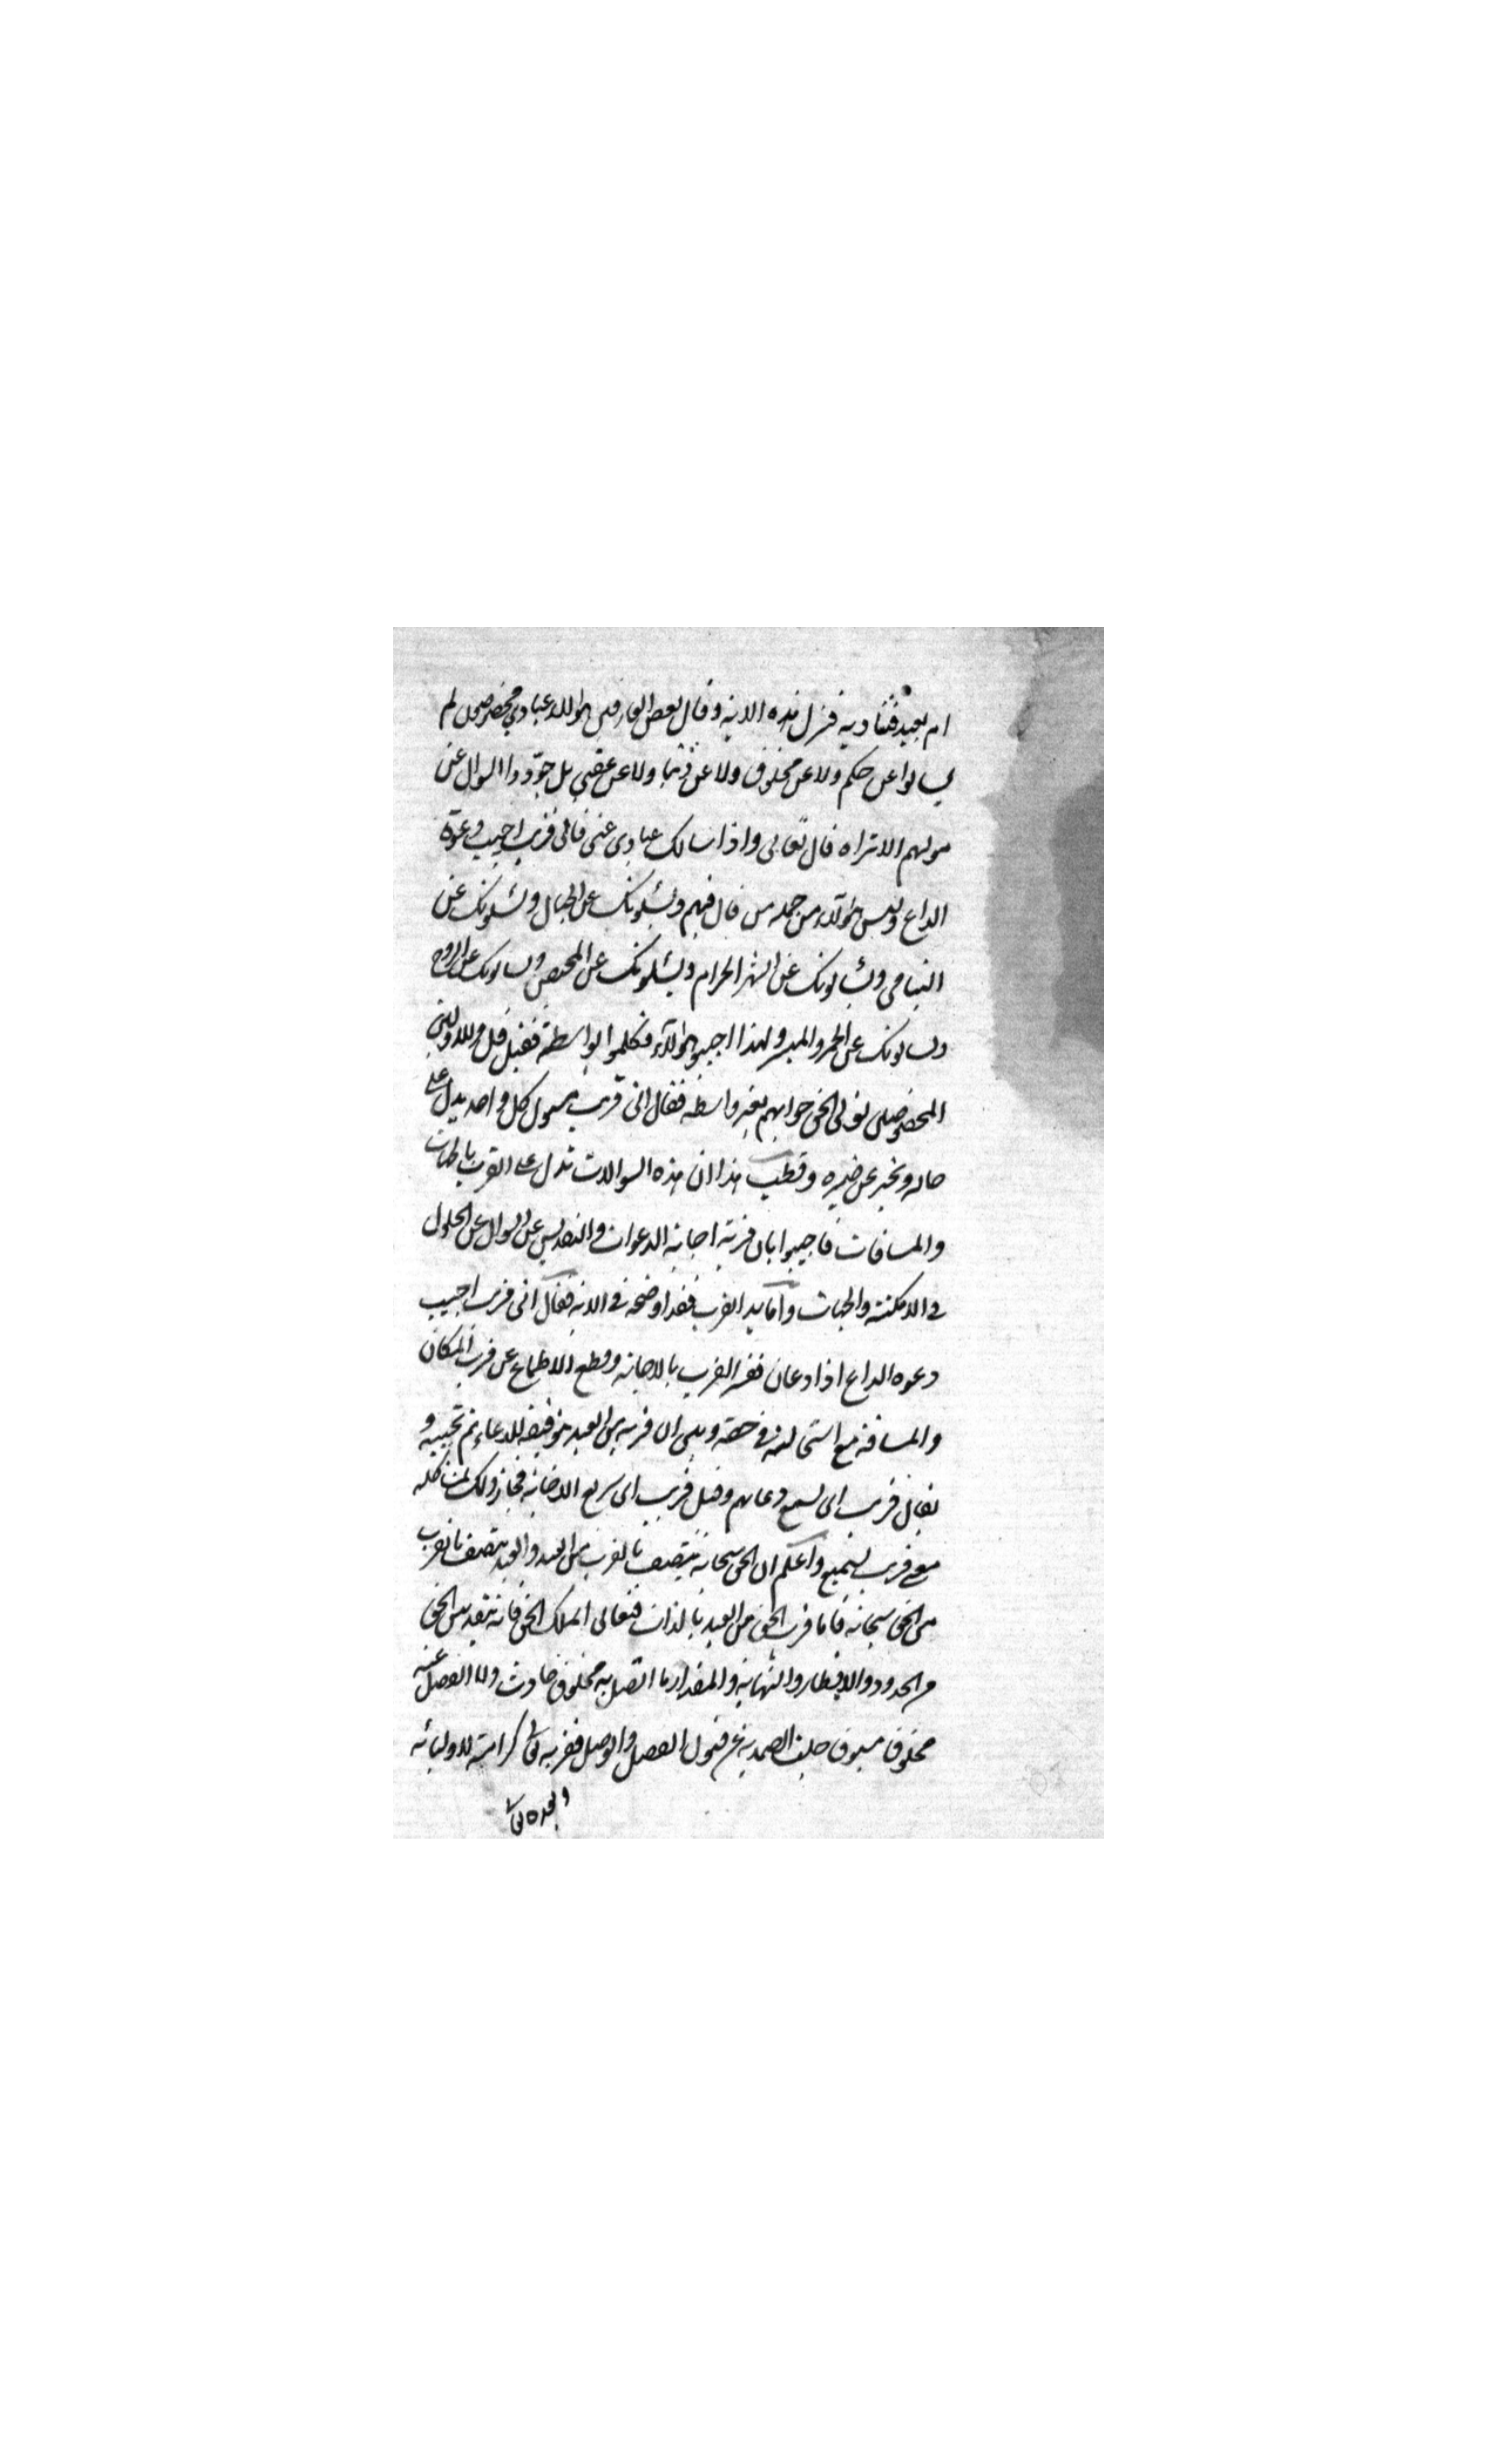 ام بعيد فنناديه فنزل هذه الاية وقال بعض العارفين هؤلاء عبادي مخصوصون لم
يسالوا عن حكم ولا عن مخلوق ولا عن دنيا ولا عن عقبى بل جردوا السوال عن
مولهم الا تراه قال تعالى واذا سالك عبادى عنى فانى قريب اجيب دعوة
الداع وليس هؤلاء من جمله من قال فيهم ويسئلونك عن الجبال ويسئلونك عن
اليتامى ويسالونك عن الشهر الحرام ويسئلونك عن المحيض ويسالونك عن الروح
ويسالونك عن الخمر والميسر ولهذا اجيبوا هؤلاء فكلموا بواسطة فقيل قل
المخصوصين تولى الحق جوابهم بغير واسطه فقال انى قريب سول كل واحد يدل على
حاله ويخبر عن ضميره وقطب هذا ان هذه السوالات تدل على القرب بالجهات
والمسافات فاجيبوا بان قربه اجابة الدعوات والتقديس عن السوال عن الحلول
فى الامكنة والجهات وتاكيد القرب فقد اوضحه فى الاية فقال انى قريب اجيب
دعوه الداع اذا دعان ففسر القرب بالاجابة وقطع الاطماع عن قرب المكان
والمسافة مع استحالته فى حقه وبين ان قربه من العبد بتوفيقه للدعاء ثم تجيبه و
يقال قريب اى يسمع دعاهم وقيل قريب اى سريع الاجابة فجاز ذلك لمشاكله
معنى قريب لسميع واعلم ان الحق سبحانه يتصف بالقرب من العبد والعبد يتصف بالقرب
من الحق سبحانه فاما قرب الحق من العبد بالذات فتعالى الملك الحق فانه تقديس الحق
من الحدود والاقطار والنهاية والمقدار ما اتصل به مخلوق حادث ولا انفصل عنه
مخلوق مسبوق جلت الصمدية عن قبول الفصل والوصل فقربه تعالى كرامته لاوليائه
وبعده تعالى